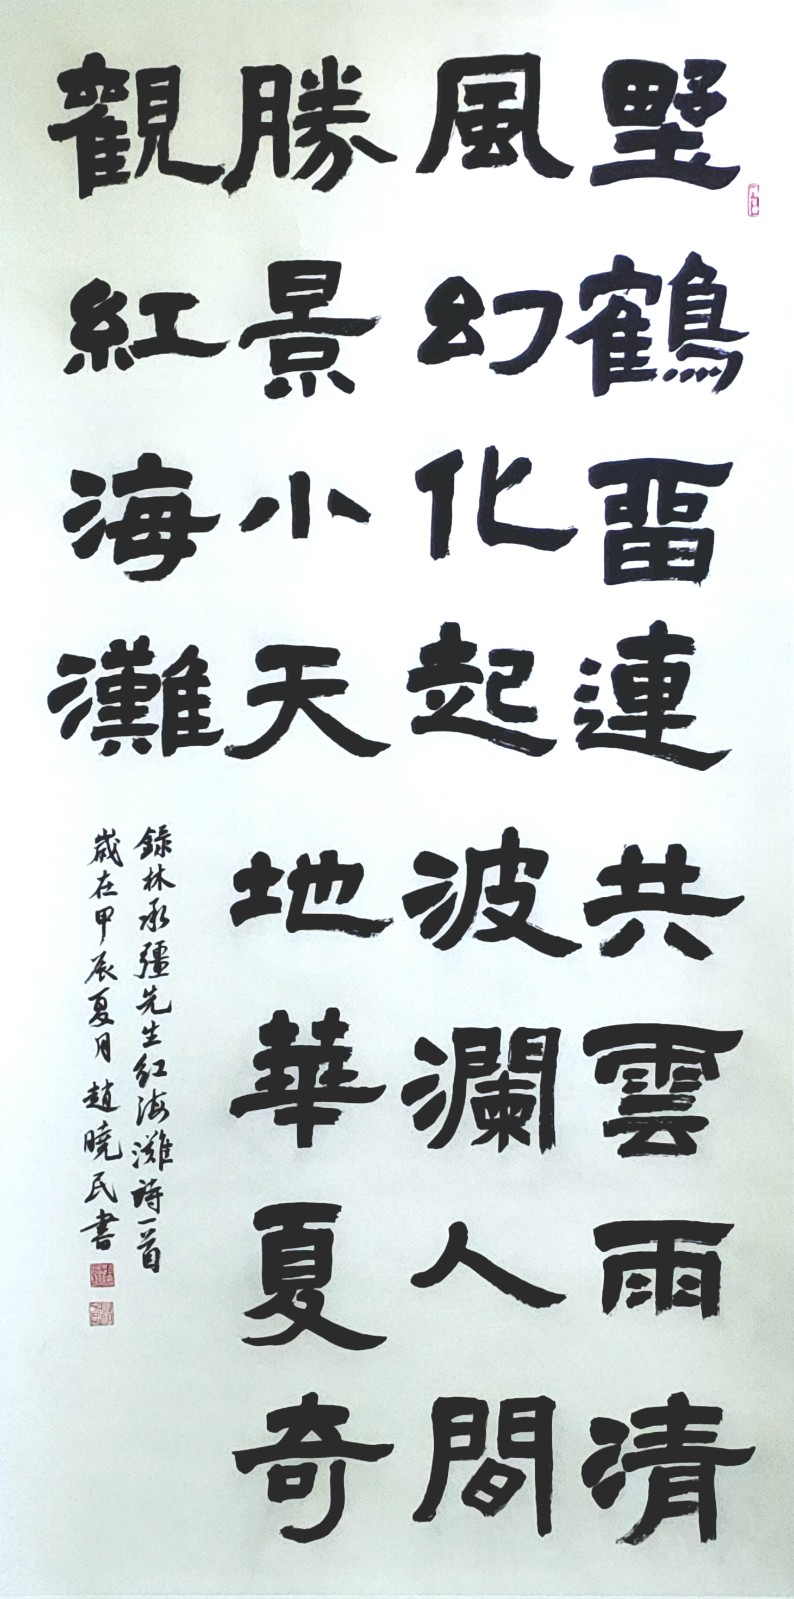 墅鶴畱連共雲雨清
風幻化起波瀾人間
勝景小天地華夏奇
觀紅海灘
錄林承彊先生紅海灘詩一首
歲在甲辰夏月趙曉民書